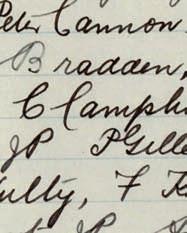 Peter Cannon
Bradden,
C Camph
JP PGille
ulty, F K